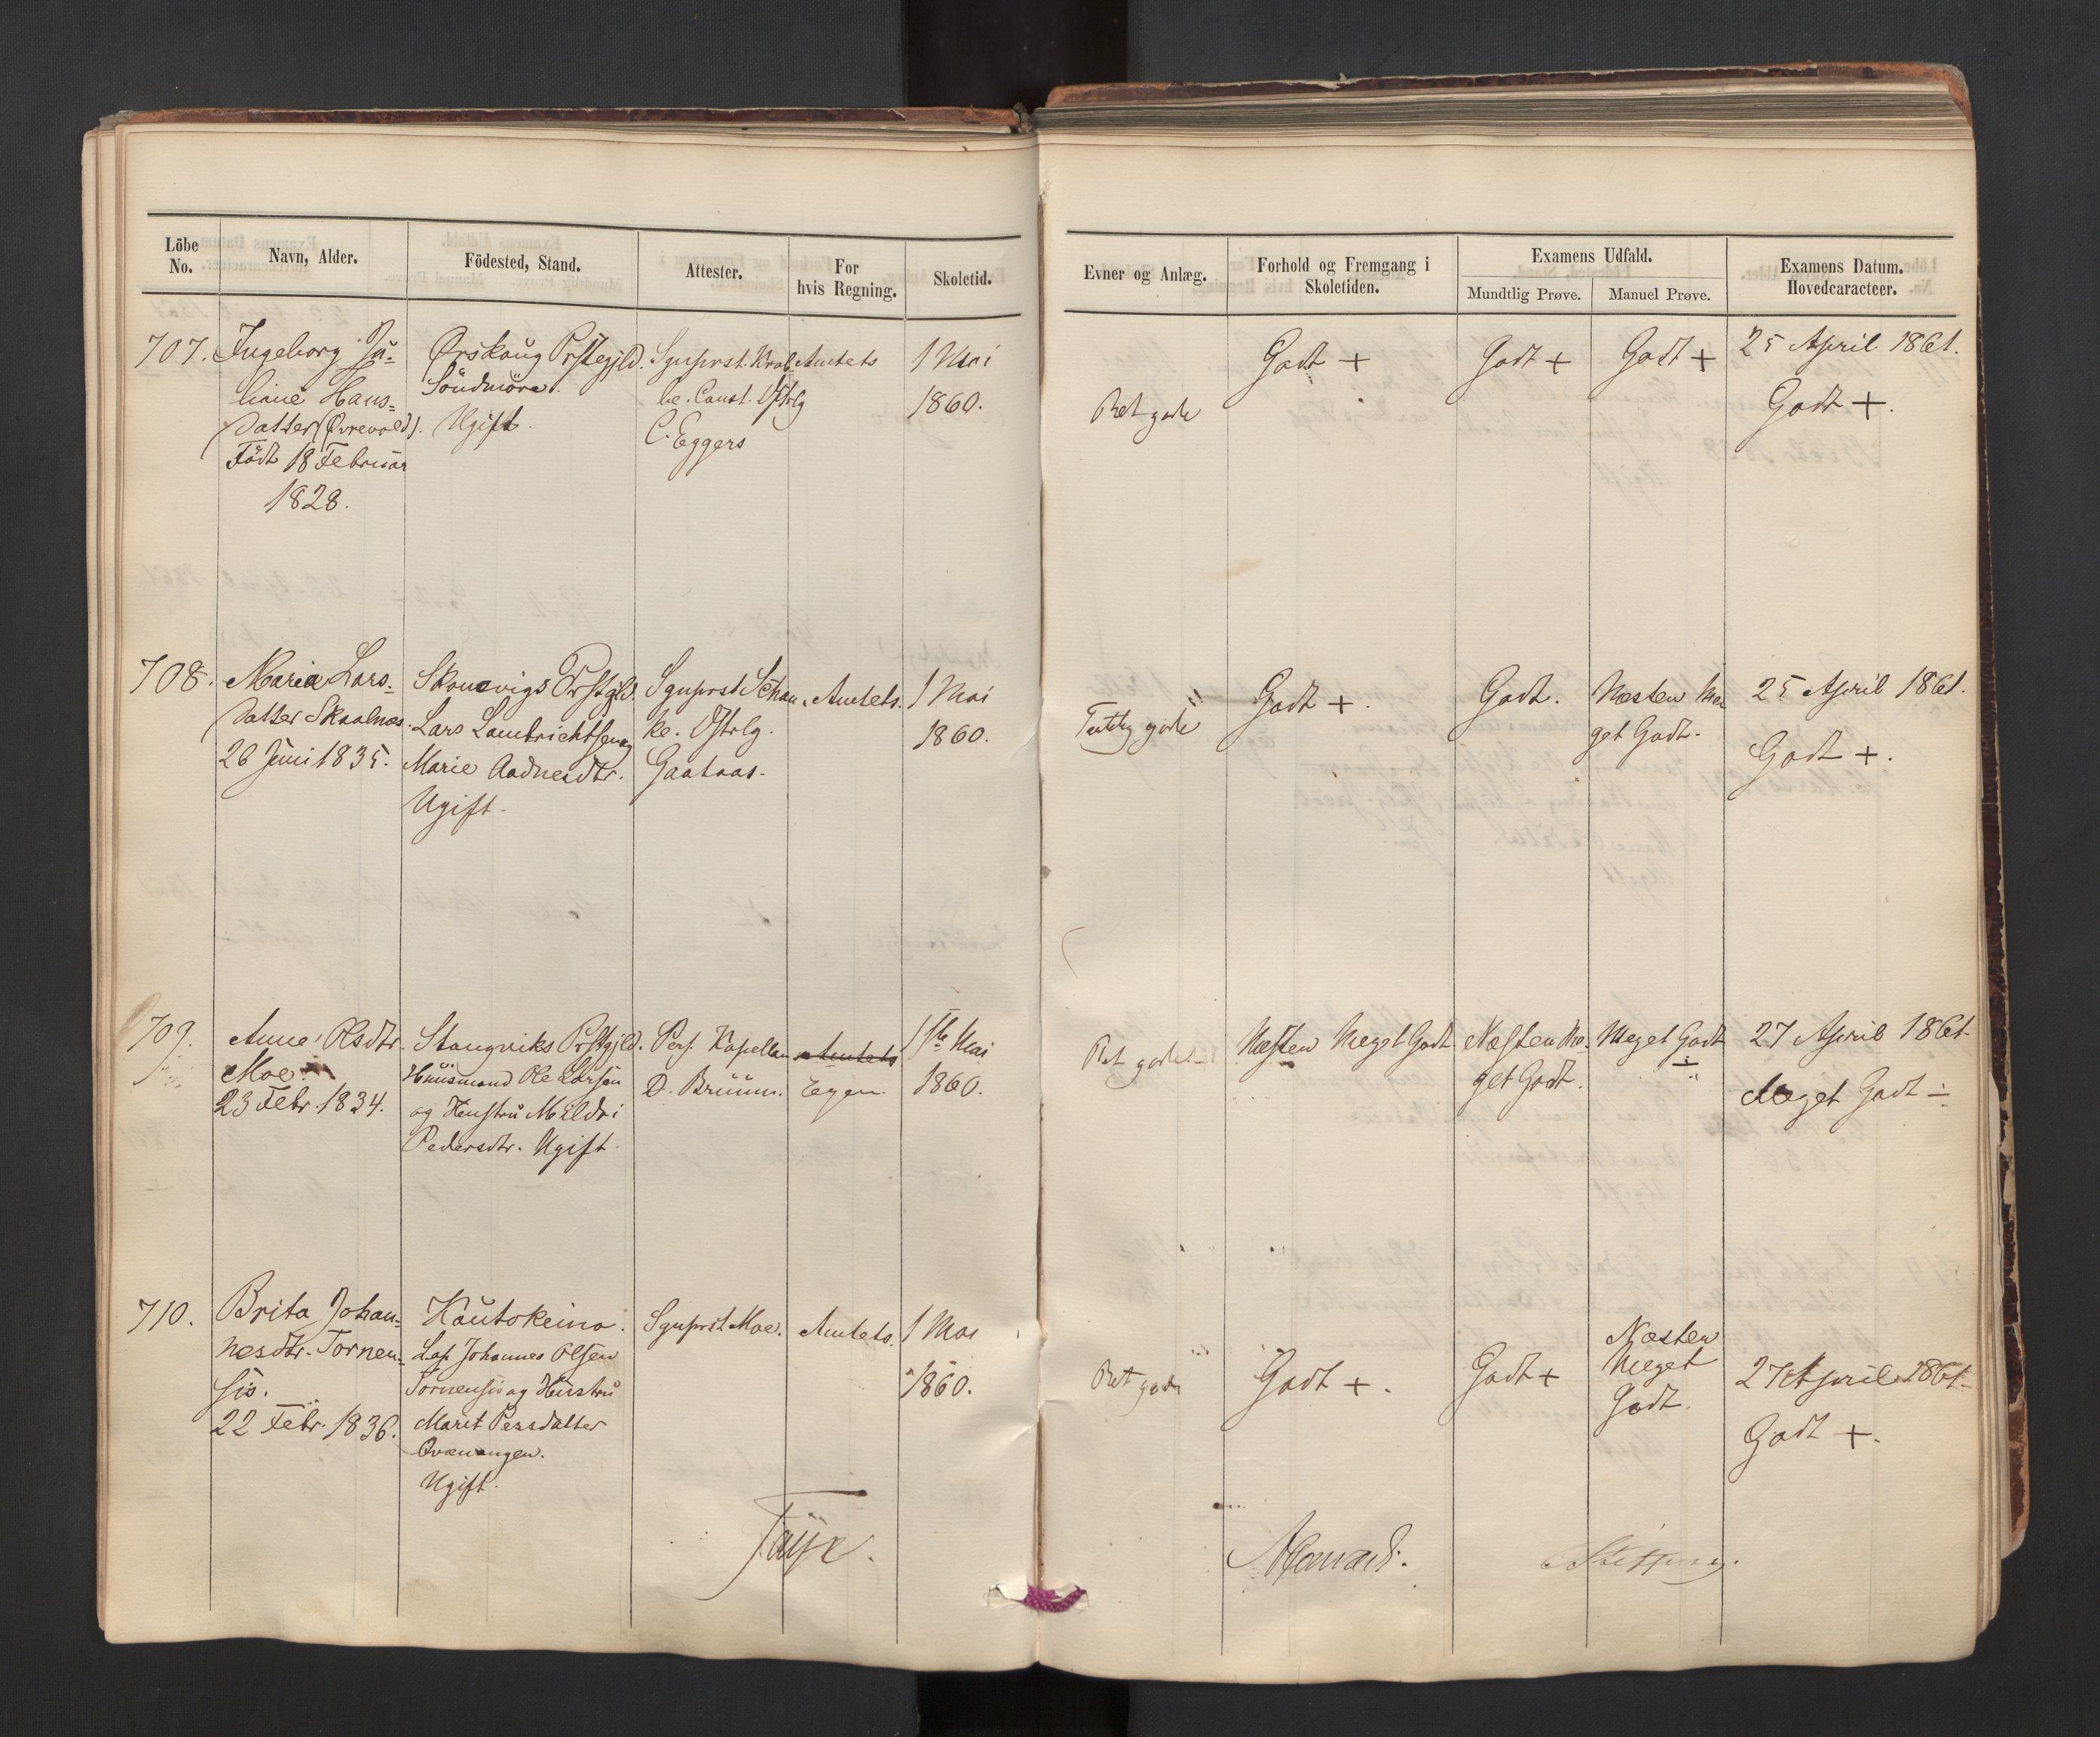 Löbe No.
Navn, Alder.
Födested, Stand.
Attester.
For hvis Regning.
Skoletid.
Evner og Anlæg.
Forhold og Fremgang i Skoletiden.
Examens Udfald.
Mundtlig Prøve.
Manuel Prøve.
Examens Datum. Hovedcaracteer.
707.
Ingeborg Ju=
liane Hans=
datter (Øvrevold).
Födt 18 Februar
1828.
Ørskoug Prstgjld.
Söndmöre.
Ugift.
Sgnprst. Krab
be. Const. Dstrlg
C. Eggers
Amtets
1 Mai
1860.
Ret gode
Godt +
Godt +
Godt +
25 April 1861.
Godt +.
708.
Maria Lars=
datter Skaalnæs.
26 Juni 1835.
Skonevigs Prstgjld.
Lars Lambrichtsen og
Marie Aadnesdtr.
Ugift.
Sgnprst Schan
ke. Dstrlg.
Gaataas.
Amtets.
1 Mai
1860.
gode
Godt +.
Godt.
Næsten Me
get Godt.
25 April 1861.
Godt +.
709.
Anne Olsdtr.
Moe.
23 Febr. 1834.
Stangviks Prstgjld.
Huusmand Ole Larsen
og Hustru Mildri
Pedersdtr. Ugift.
Pers. Kapellan
D. Bruun.
Amtets
Egen.
1ste Mai
1860.
Ret gode
Næsten Meget Godt
Næsten Me=
get Godt.
Meget Godt
÷
27 April 1861.
Meget Godt ÷
710.
Brita Johan=
nesdtr. Tornen=
sis.
22 Febr. 1836.
Kautokeino.
Lap Johannes Olsen
Tornensis og Hustru
Marit Persdatter
Qvænangen.
Ugift.
Sgnprst Moe.
Amtets.
1 Mai
1860.
Ret gode
Godt +.
Godt +
Næsten
Meget
Godt.
27 April 1861.
Godt +.
Faye.